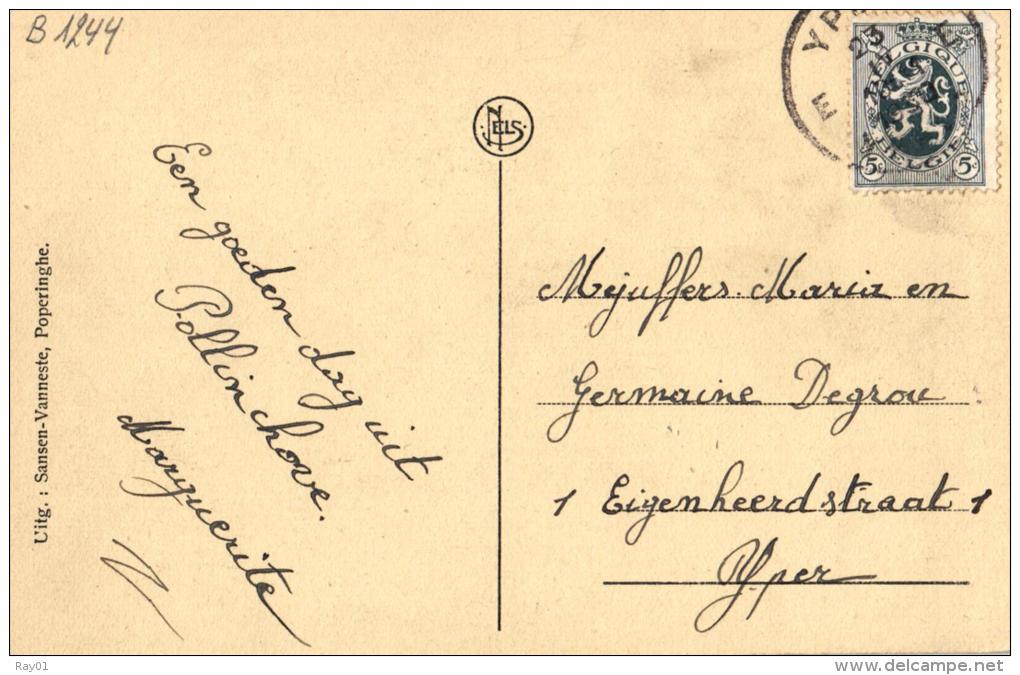 B 1244
YP
E
23
BELGIQUE
BELGIË
5c
5c
NELS
Een goeden dag uit
Pollinchove.
Marguerite
Uitg. : Sansen-Vanneste, Poperinghe.
Mejuffers. Maria en
Germaine Degrou
1 Eigenheerdstraat 1
Yper
Ray01
www.delcampe.net